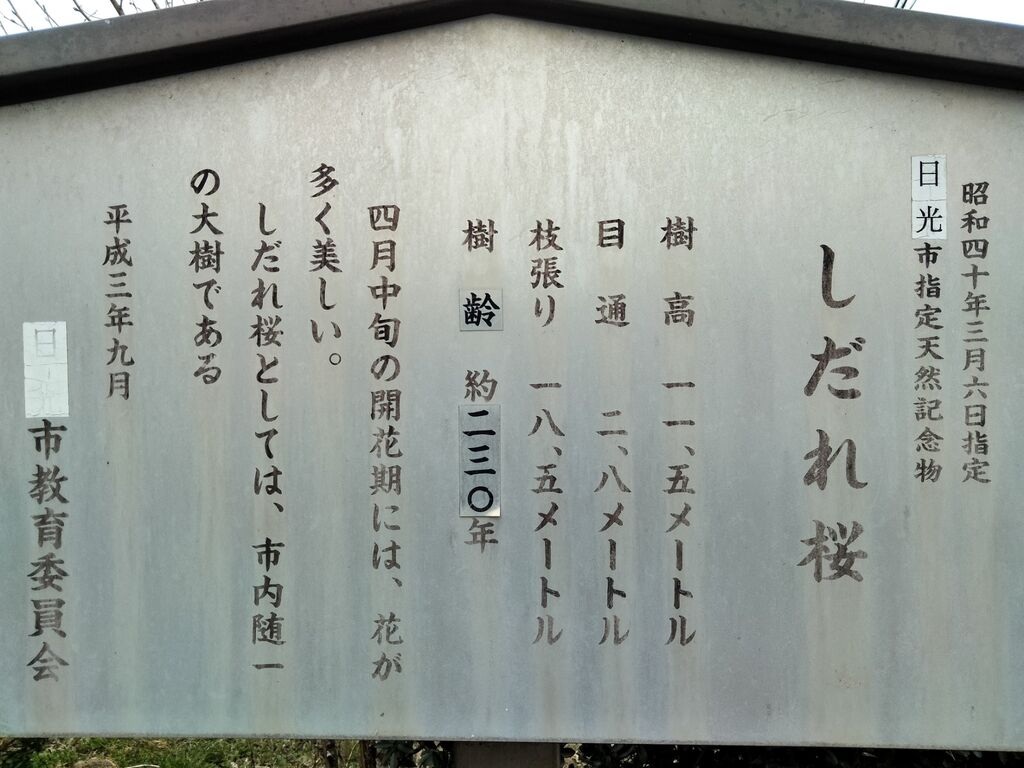 昭和四十年三月六日指定
日光市指定天然記念物
しだれ桜
樹高 一一、五メートル
目通 二、八メートル
枝張り 一八、五メートル
樹齢 約二三〇年
四月中旬の開花期には、花が
多く美しい。
しだれ桜としては、市内随一
の大樹である
平成三年九月
市教育委員会